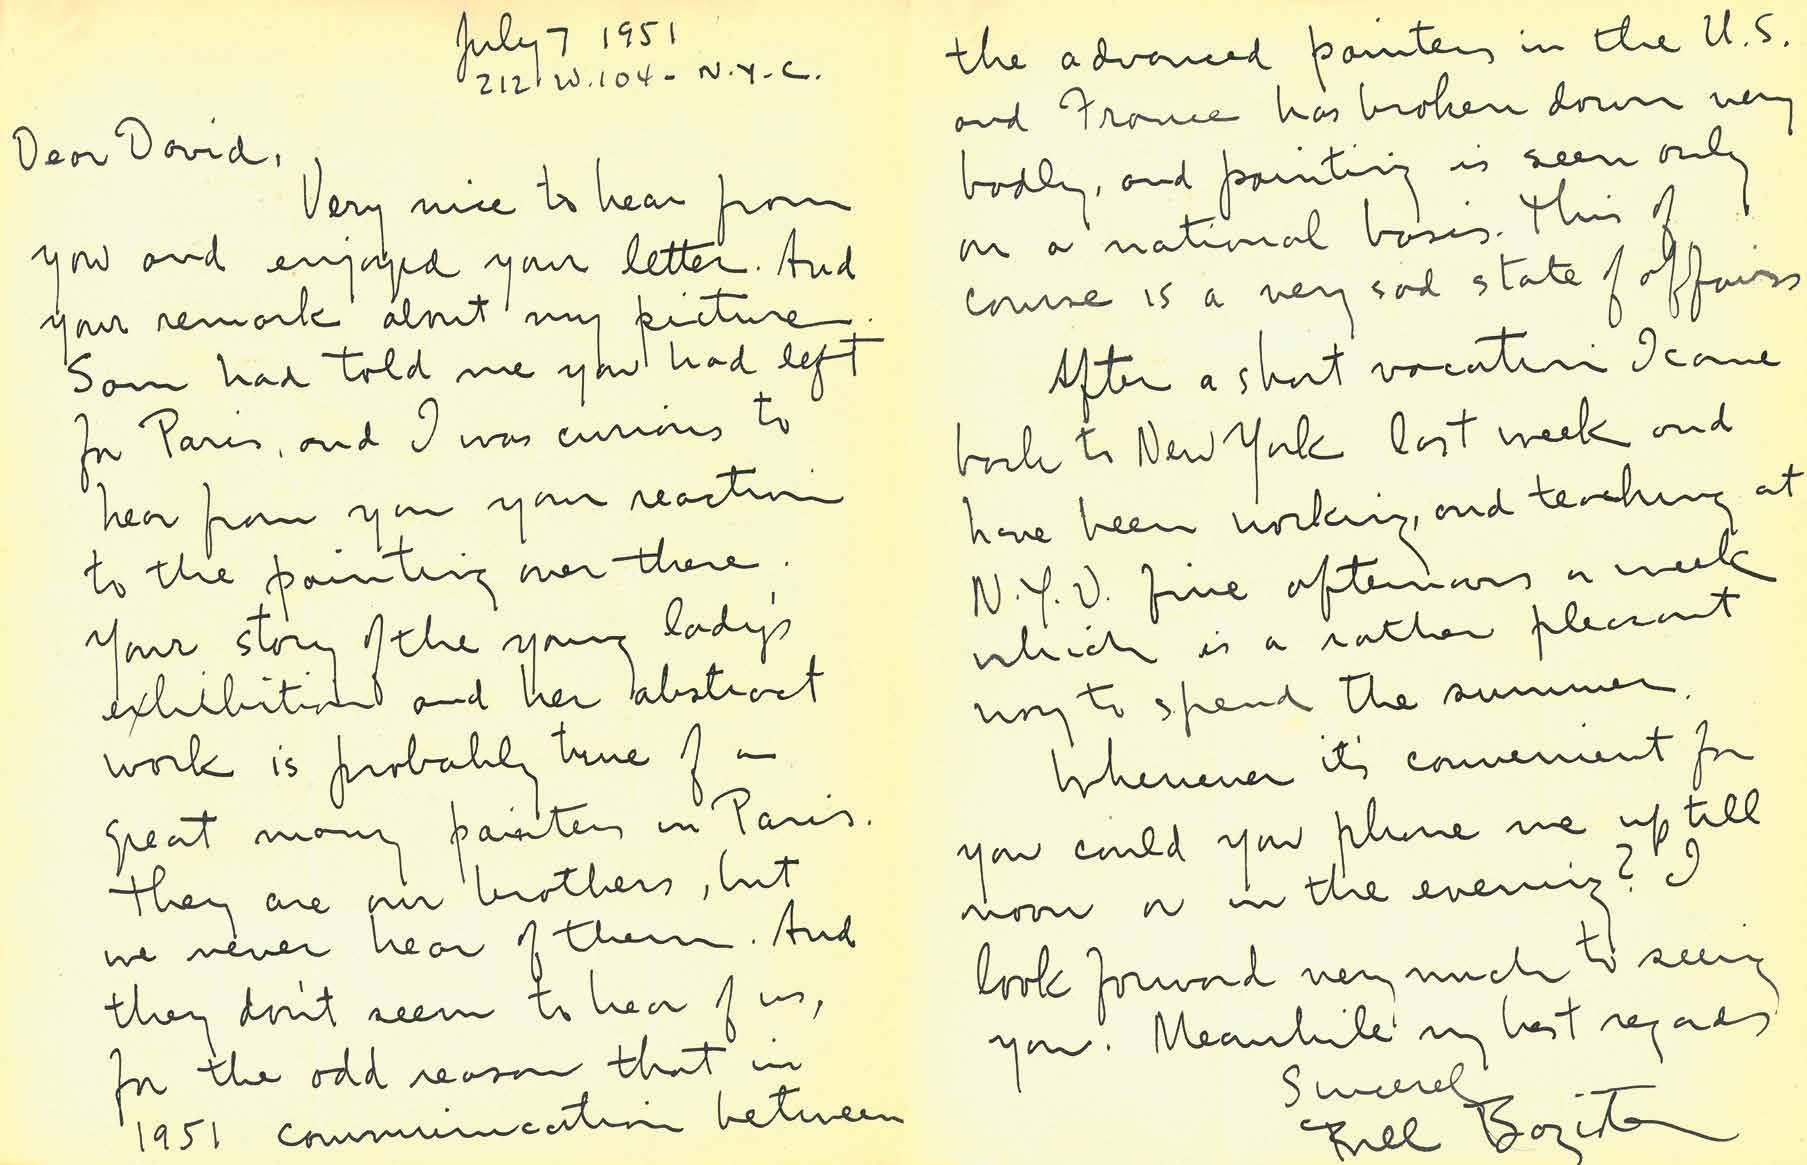 July 7 1951
212 W. 104 - N.Y.C.
Dear David,
Very nice to hear from
you and enjoyed your letter. And
your remark about my picture.
Sam had told me you had left
for Paris, and I was curious to
hear from you your reaction
to the painting over there.
Your story of the young lady's
exhibition and her abstract
work is probably true of a
great many painters in Paris.
They are our brothers, but
we never hear of them. And
they don't seem to hear of us,
for the odd reason that in
1951 communication between
the advanced painters in the U.S.
and France has broken down very
badly, and painting is seen only
on a national basis. This of
course is a very sad state of affairs
After a short vacation I came
back to New York last week and
have been working, and teaching at
N.Y.U. five afternoons a week
which is a rather pleasant
way to spend the summer.
Whenever it's convenient for
you could you phone me up till
noon or in the evening? I
look forward very much to seeing
you. Meanwhile my best regards
Sincerely
Bill